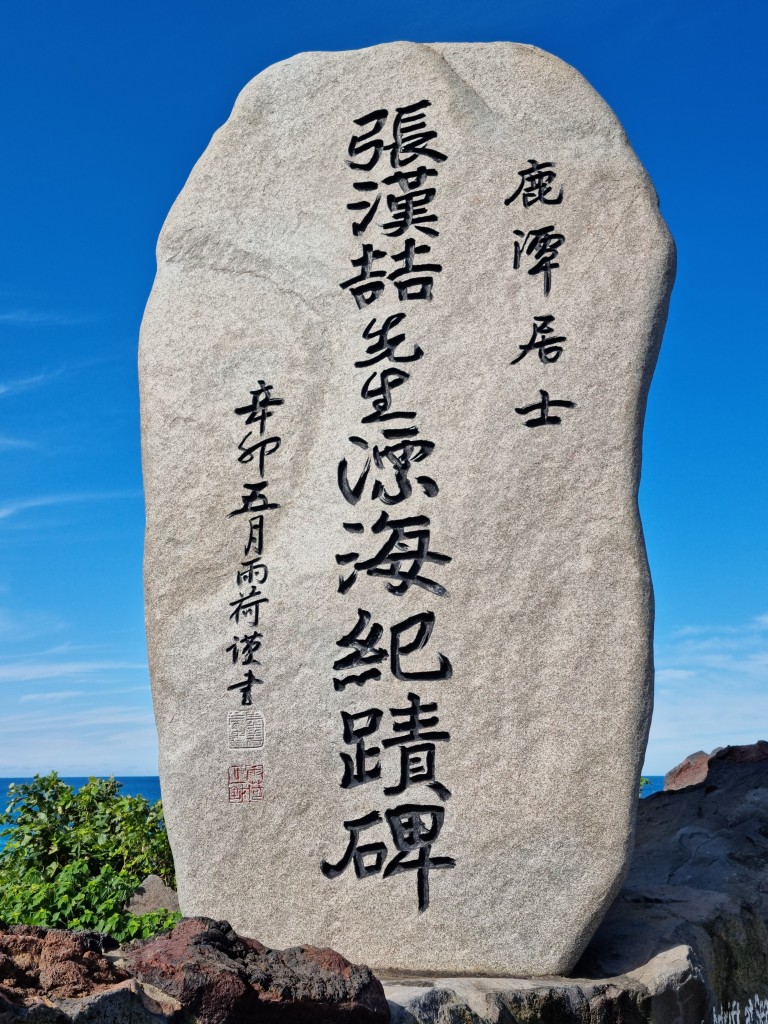 鹿潭居士
張漢喆先生漂海紀蹟碑
辛卯五月雨荷謹書